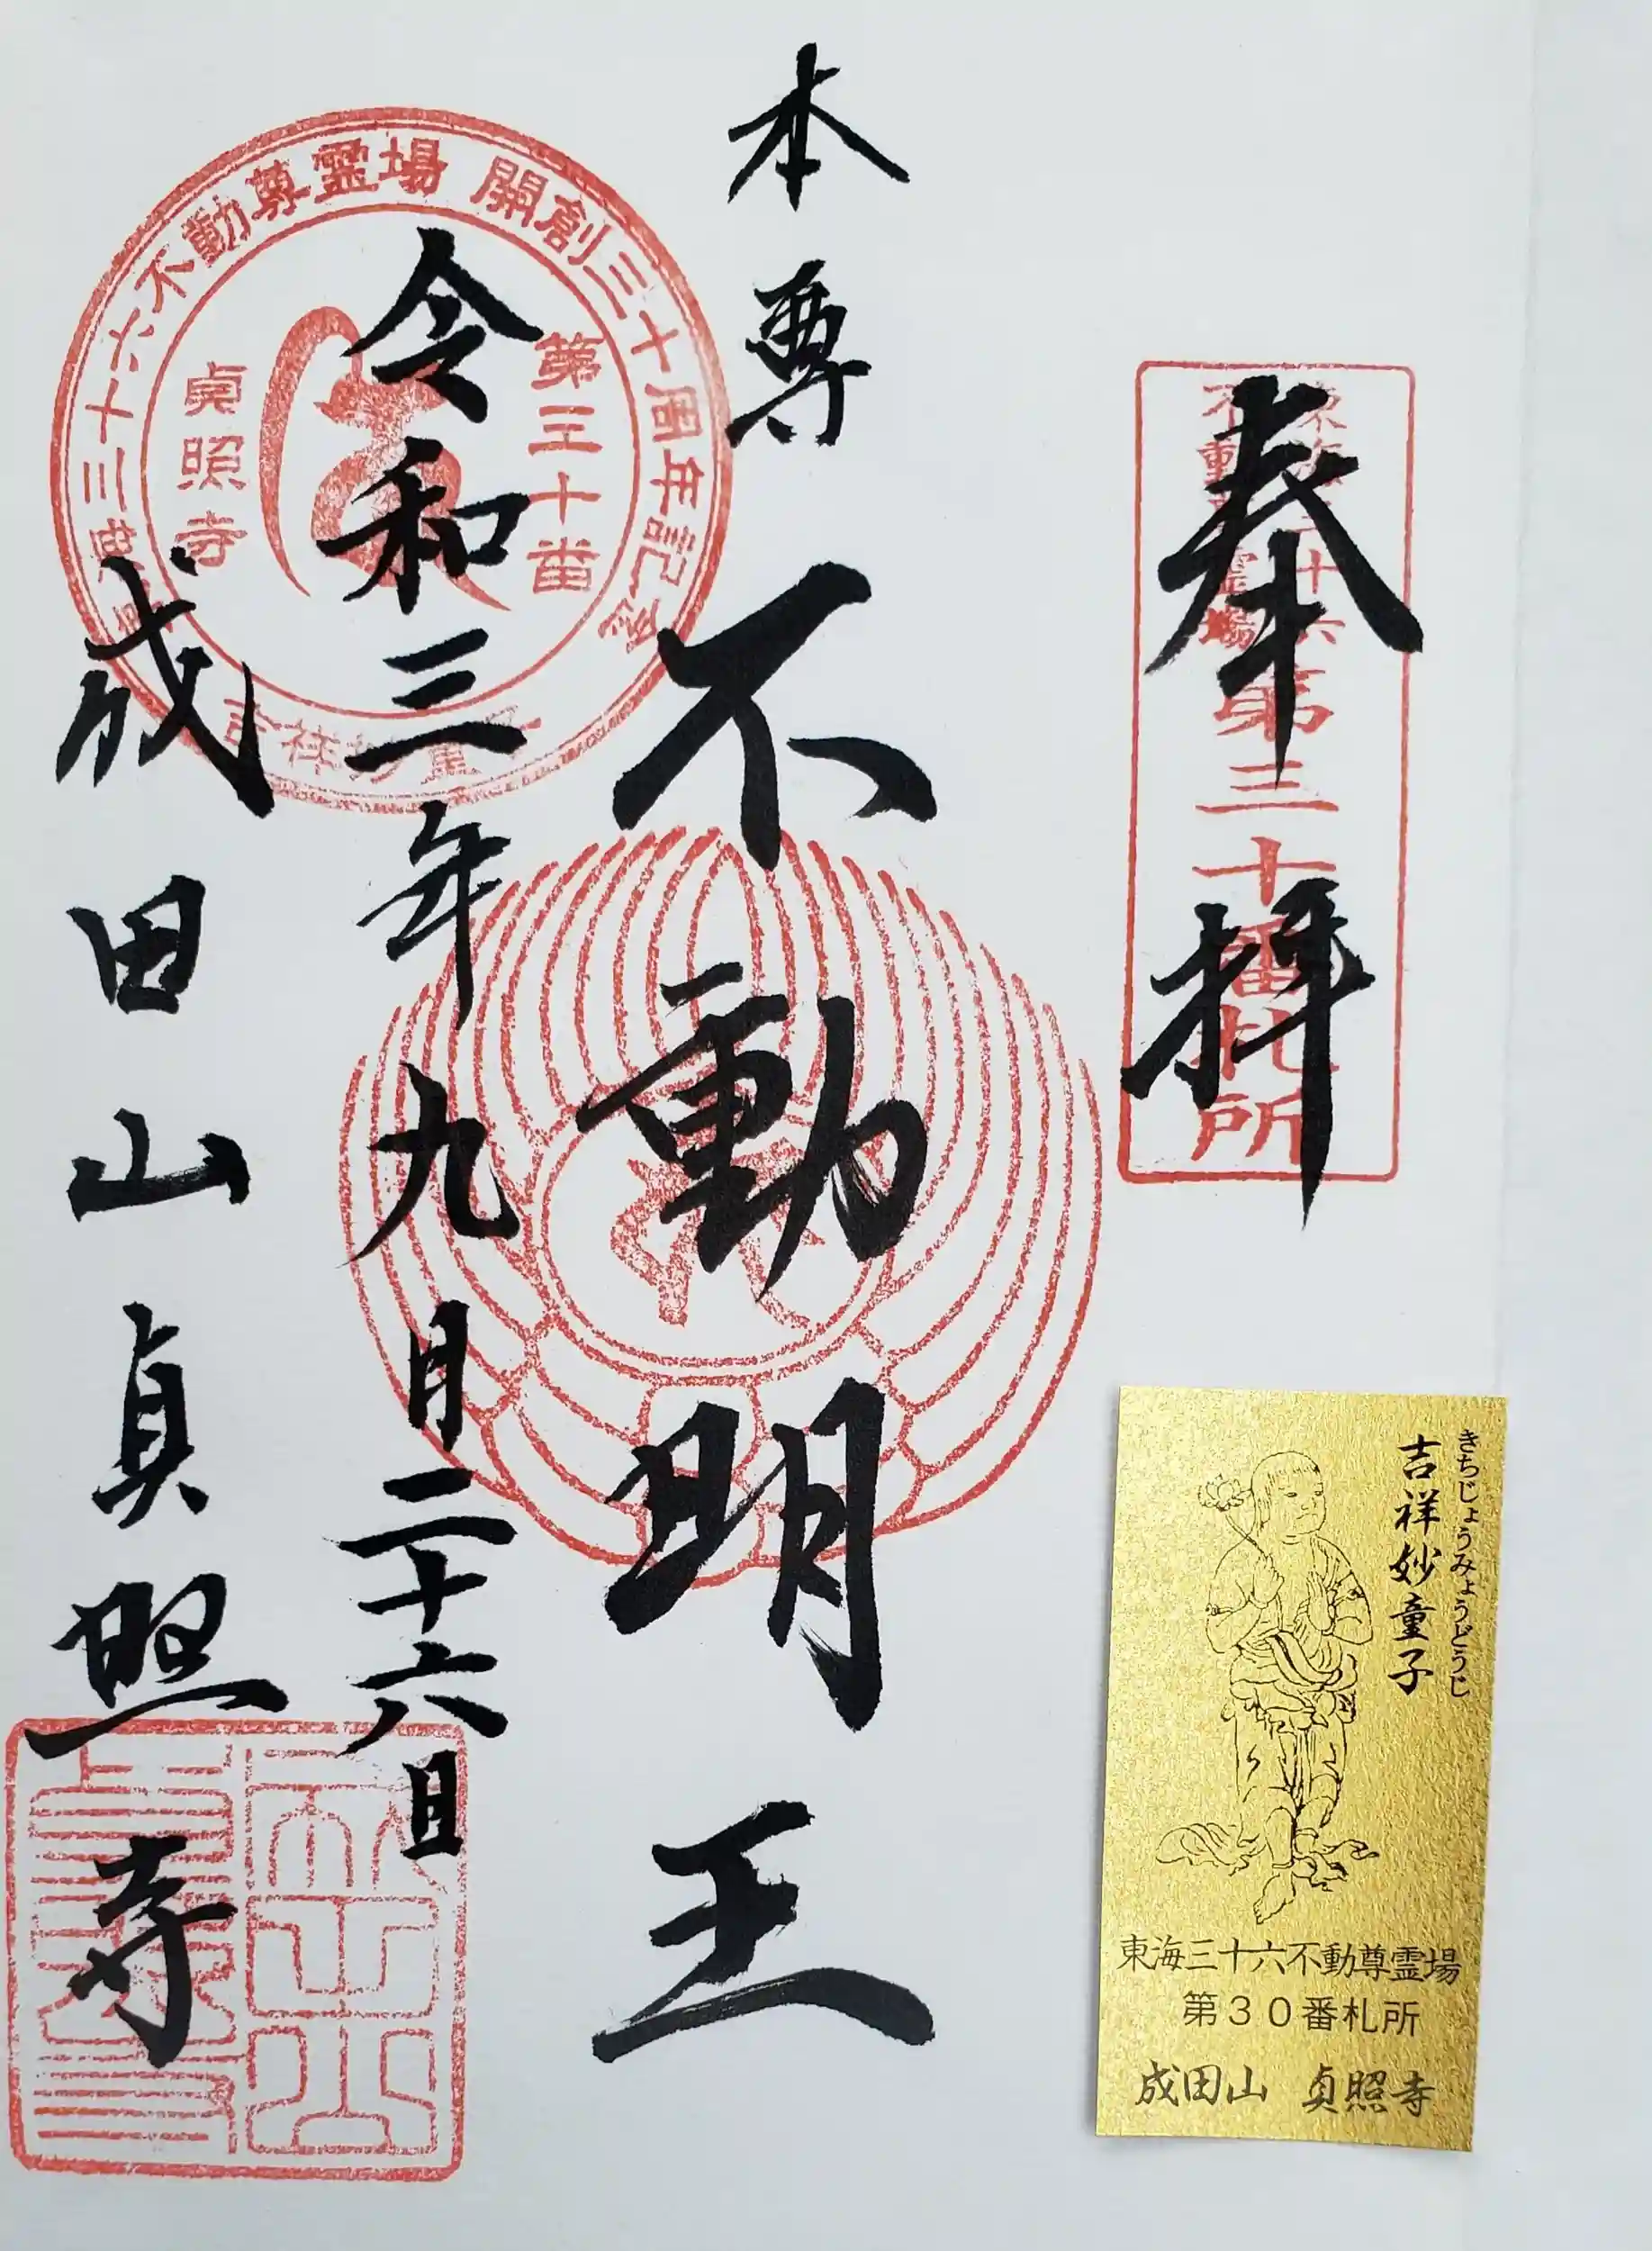 奉拝
東海三十六
不動尊霊場
第三十番札所
本尊
不動明王
令和三年九月二十六日
成田山貞照寺
三十六不動尊霊場 開創三十周年記念
第三十番
貞照寺
吉祥妙童子
きちじょうみょうどうじ
吉祥妙童子
東海三十六不動尊霊場
第30番札所
成田山 貞照寺